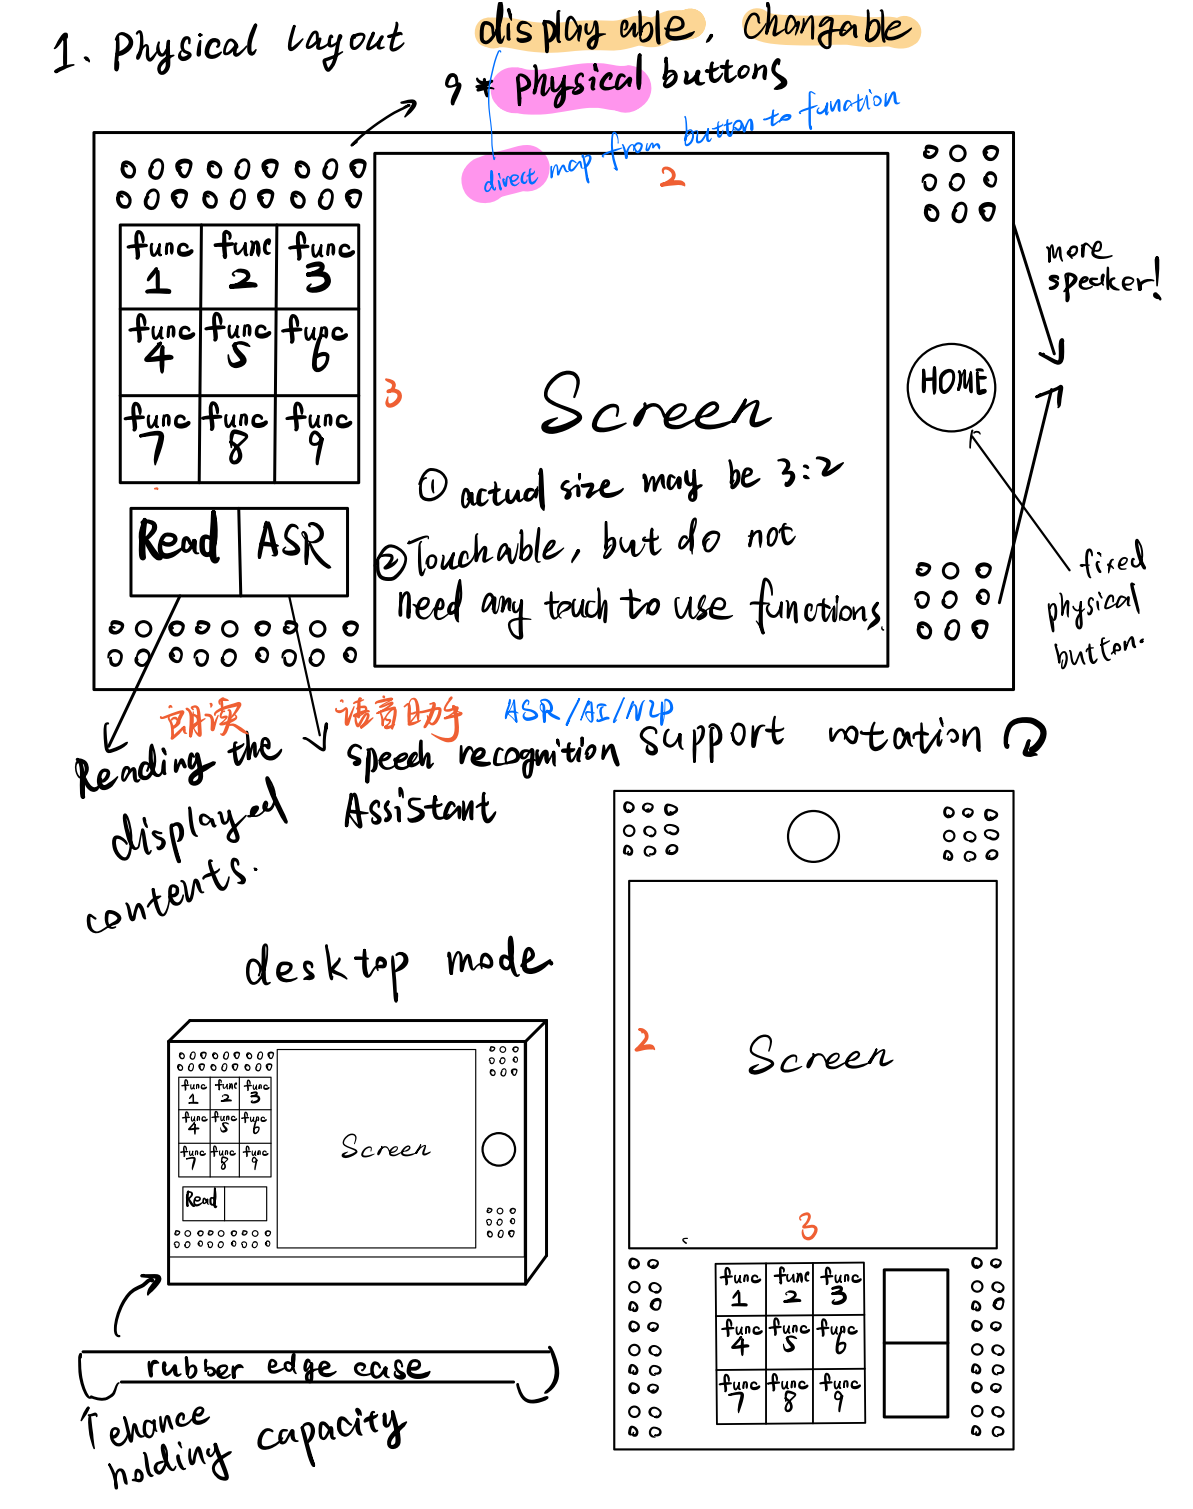 1. Physical Layout
displayable, changable
9 * physical buttons
direct map from button to function
func 1
func 2
func 3
func 4
func 5
func 6
func 7
func 8
func 9
Read
ASR
2
3
Screen
① actual size may be 3:2
② Touchable, but do not
need any touch to use functions.
more
speaker!
HOME
fixed
physical
button.
朗读
Reading the
displayed
contents.
语音助手
speech recognition
Assistant
ASR/AI/NLP
support rotation
desktop mode
func 1
func 2
func 3
func 4
func 5
func 6
func 7
func 8
func 9
Read
Screen
rubber edge case
ehance
holding capacity
2
Screen
3
func 1
func 2
func 3
func 4
func 5
func 6
func 7
func 8
func 9